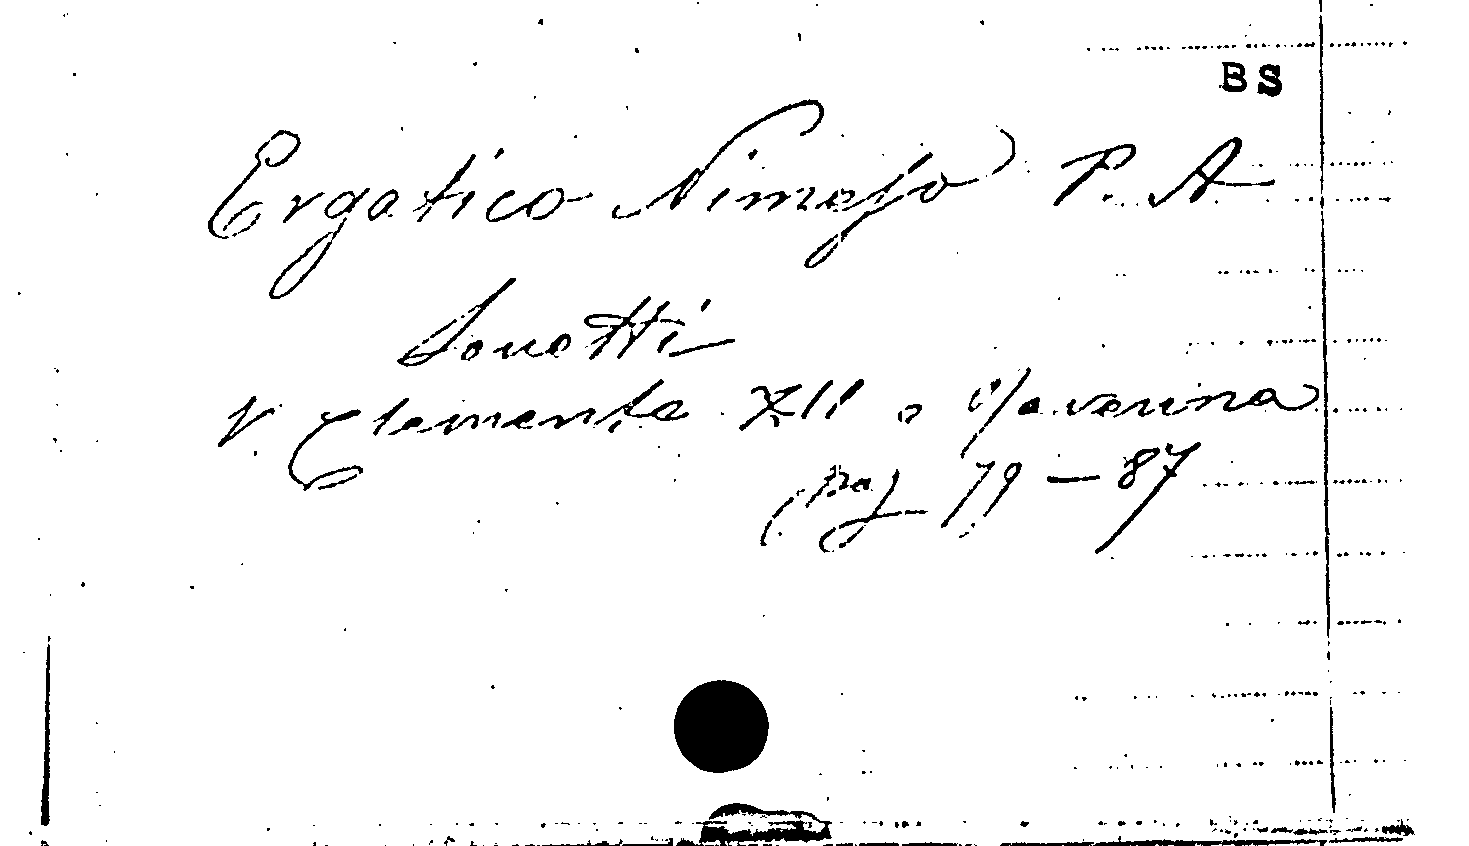 BS
Ergatico Nimesso P. A
Sonetti
V. Clemente XII a Ravenna
(pag 79 - 87